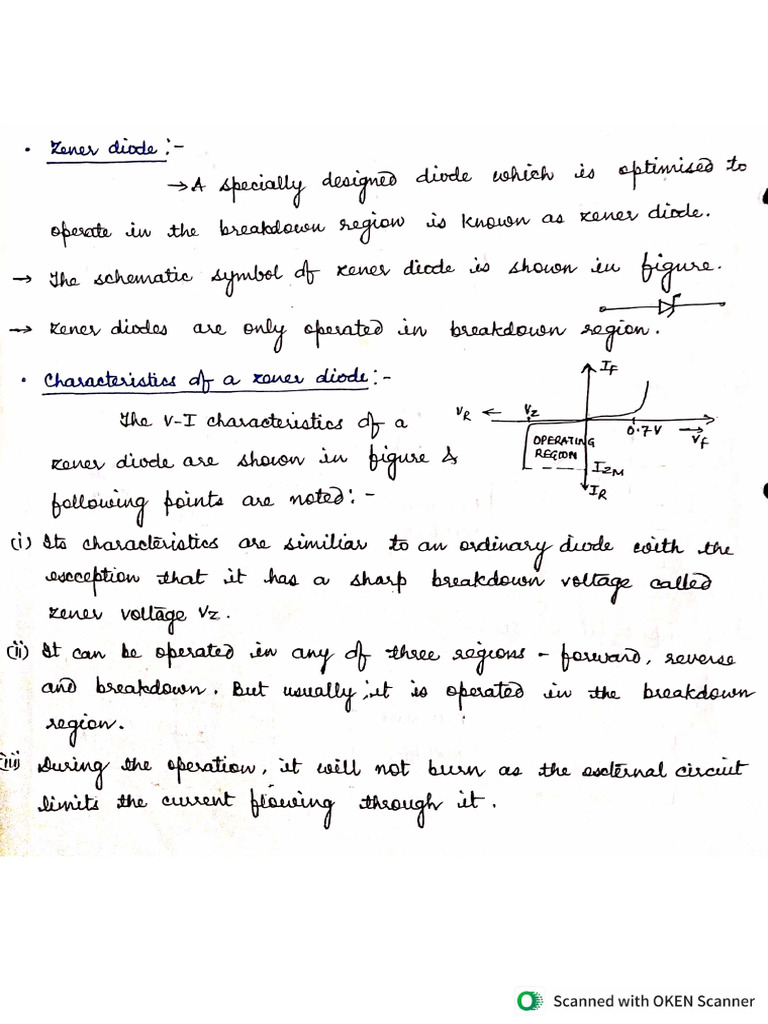 • Zener diode :-
→ A specially designed diode which is optimised to
operate in the breakdown region is known as zener diode.
→ The schematic symbol of zener diode is shown in figure.
→ Zener diodes are only operated in breakdown region.
• Characteristics of a zener diode :-
The V-I characteristics of a
zener diode are shown in figure &
following points are noted :-
IF
VR ← VZ
0.7V → VF
OPERATING
REGION
IZM
IR
(i) Its characteristics are similiar to an ordinary diode with the
exception that it has a sharp breakdown voltage called
zener voltage VZ.
(ii) It can be operated in any of three regions - forward, reverse
and breakdown. But usually, it is operated in the breakdown
region.
(iii) During the operation, it will not burn as the external circuit
limits the current flowing through it.
Scanned with OKEN Scanner